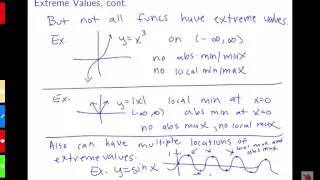 Extreme Values, cont.
But not all funcs have extreme values.
Ex. y=x³ on (-∞,∞)
no abs min/max
no local min/max
Ex. y=|x| local min at x=0
(-∞,∞) abs min at x=0
no abs max, no local max
Also can have multiple locations of local max and abs max
extreme values.
Ex. y=sin x